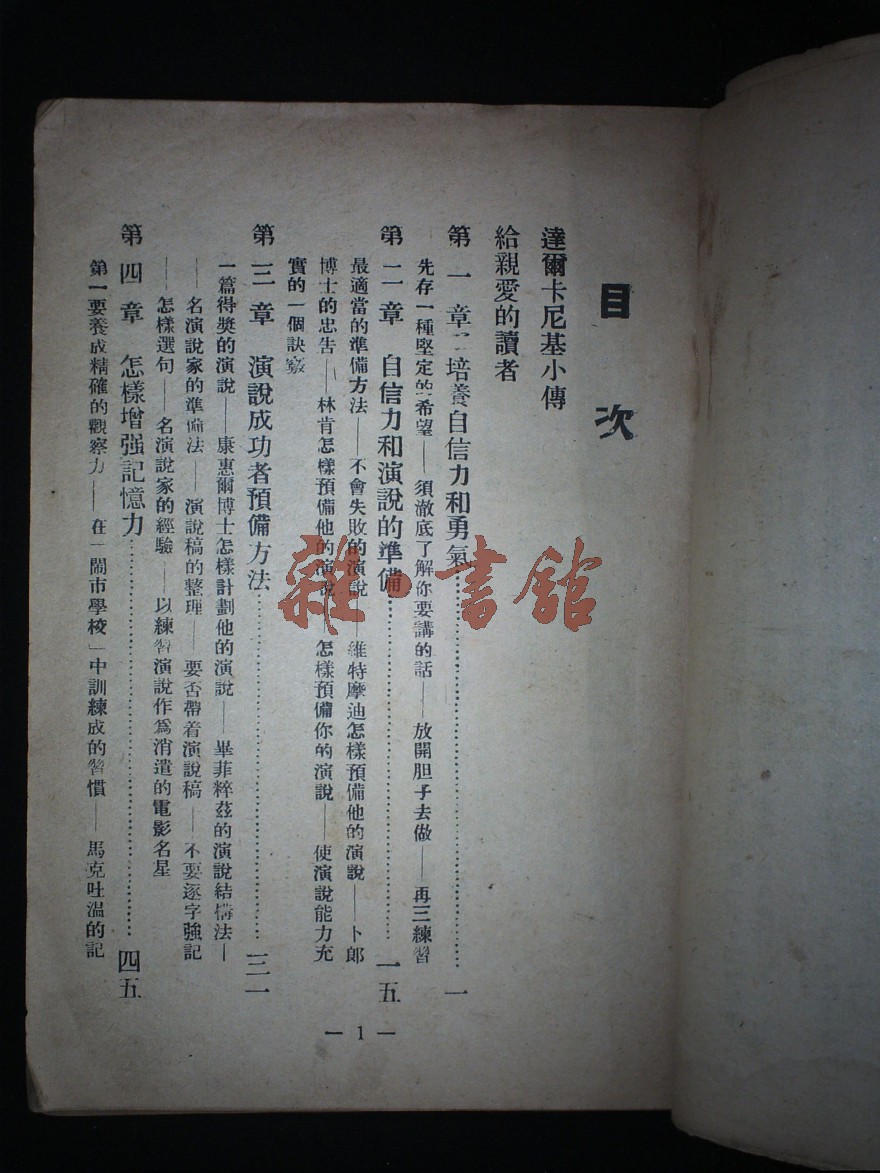 目次
達爾卡尼基小傳
給親愛的讀者
第一章 培養自信力和勇氣……一
先存一種堅定的希望——須澈底了解你要講的話——放開胆子去做——再三練習
第二章 自信力和演說的準備……一五
最適當的準備方法——不會失敗的演說——維特摩迪怎樣預備他的演說——卜郎
博士的忠告——林肯怎樣預備他的演說——怎樣預備你的演說——使演說能力充
實的一個訣竅
第三章 演說成功者預備方法……三一
一篇得獎的演說——康惠爾博士怎樣計劃他的演說——畢菲粹茲的演說結構法—
—名演說家的準備法——演說稿的整理——要否帶着演說稿——不要逐字強記
——怎樣選句——名演說家的經驗——以練習演說作爲消遣的電影名星
第四章 怎樣增强記憶力……四五
第一要養成精確的觀察力——在「鬧市學校」中訓練成的習慣——馬克吐溫的記
— 1 —
雜·書館